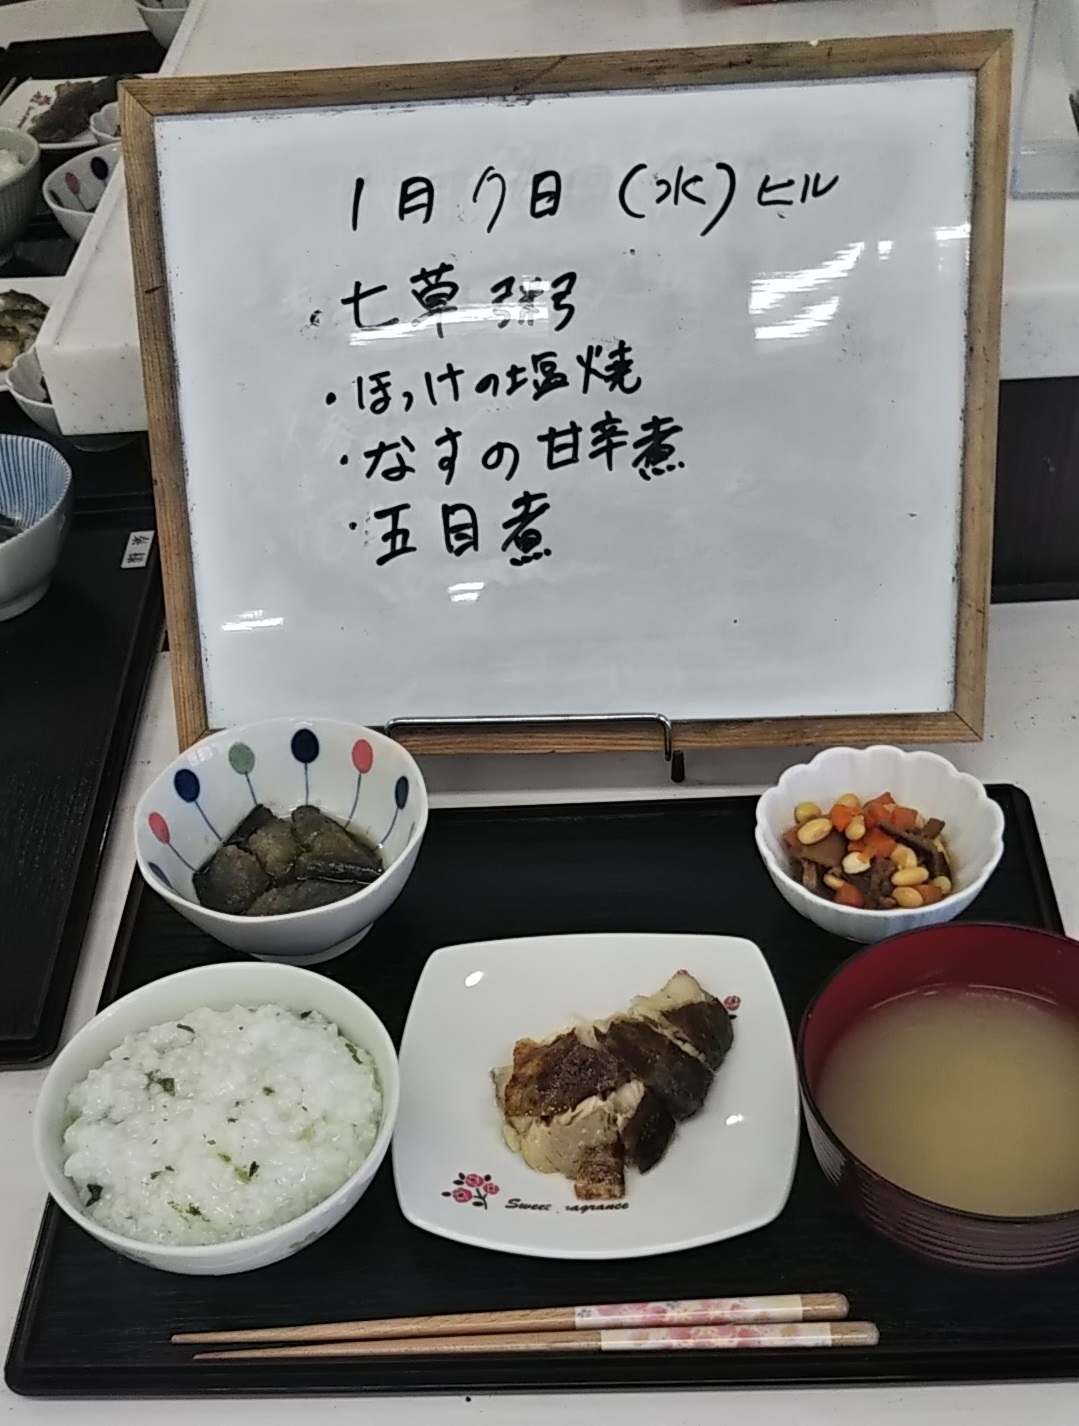 1月7日（水）ヒル
・七草粥
・ほっけの塩焼
・なすの甘辛煮
・五目煮
Sweet